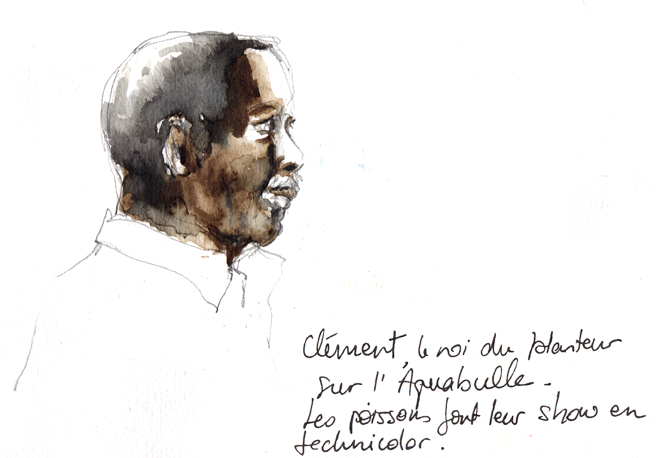 Clément, le roi du planteur
sur l'Aquabulle.
Les poissons font leur show en
technicolor.